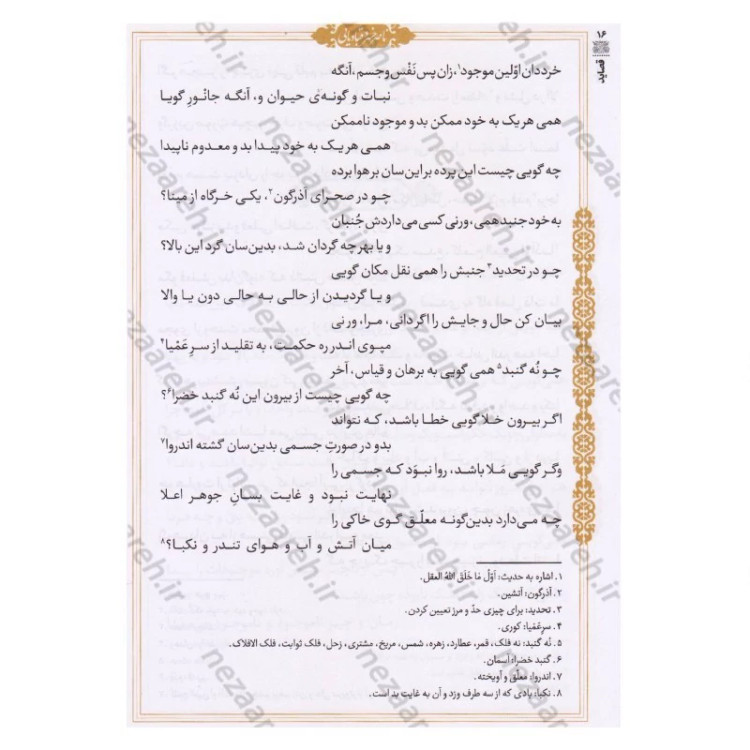 ۱۶
قصاید
خرد دان اوّلین موجود۱، زان پس نَفْس و جسم، آنگه
نبات و گونه‌ی حیوان و، آنگه جانْورِ گویا
همی هر یک به خود ممکن بد و موجود ناممکن
همی هر یک به خود پیدا بد و معدوم ناپیدا
چه گویی چیست این پرده بر این سان بر هوا برده
چو در صحرای آذرگون۲، یکی خرگاه از مینا؟
به خود جنبد همی، ورنی کسی می‌داردش جُنبان
و یا بهر چه گردان شد، بدین‌سان گرد این بالا؟
چو در تحدید۳ جنبش را همی نقل مکان گویی
و یا گردیدن از حالی به حالی دون یا والا
بیان کن حال و جایش را اگر دانی، مرا، ورنی
مپوی اندر ره حکمت، به تقلید از سرِ عَمْیا۴
چو نُه گنبد۵ همی گویی به برهان و قیاس، آخر
چه گویی چیست از بیرون این نُه گنبد خضرا۶؟
اگر بیرون خلا گویی خطا باشد، که نتواند
بدو در صورتِ جسمی بدین‌سان گشته اندروا۷
وگر گویی مَلا باشد، روا نبوَد که جسمی را
نهایت نبود و غایت بسانِ جوهر اعلا
چه می‌دارد بدین‌گونه معلّق گوی خاکی را
میان آتش و آب و هوای تندر و نکبا؟۸
۱. اشاره به حدیث: اَوّلُ مَا خَلَقَ اللهُ العقل.
۲. آذرگون: آتشین.
۳. تحدید: برای چیزی حدّ و مرز تعیین کردن.
۴. سرِ عَمْیا: کوری.
۵. نُه گنبد: نه فلک، قمر، عطارد، زهره، شمس، مریخ، مشتری، زحل، فلک ثوابت، فلک الافلاک.
۶. گنبد خضرا: آسمان.
۷. اندروا: معلّق و آویخته.
۸. نکبا: بادی که از سه طرف وزد و آن به غایت بد است.
nezaareh.ir